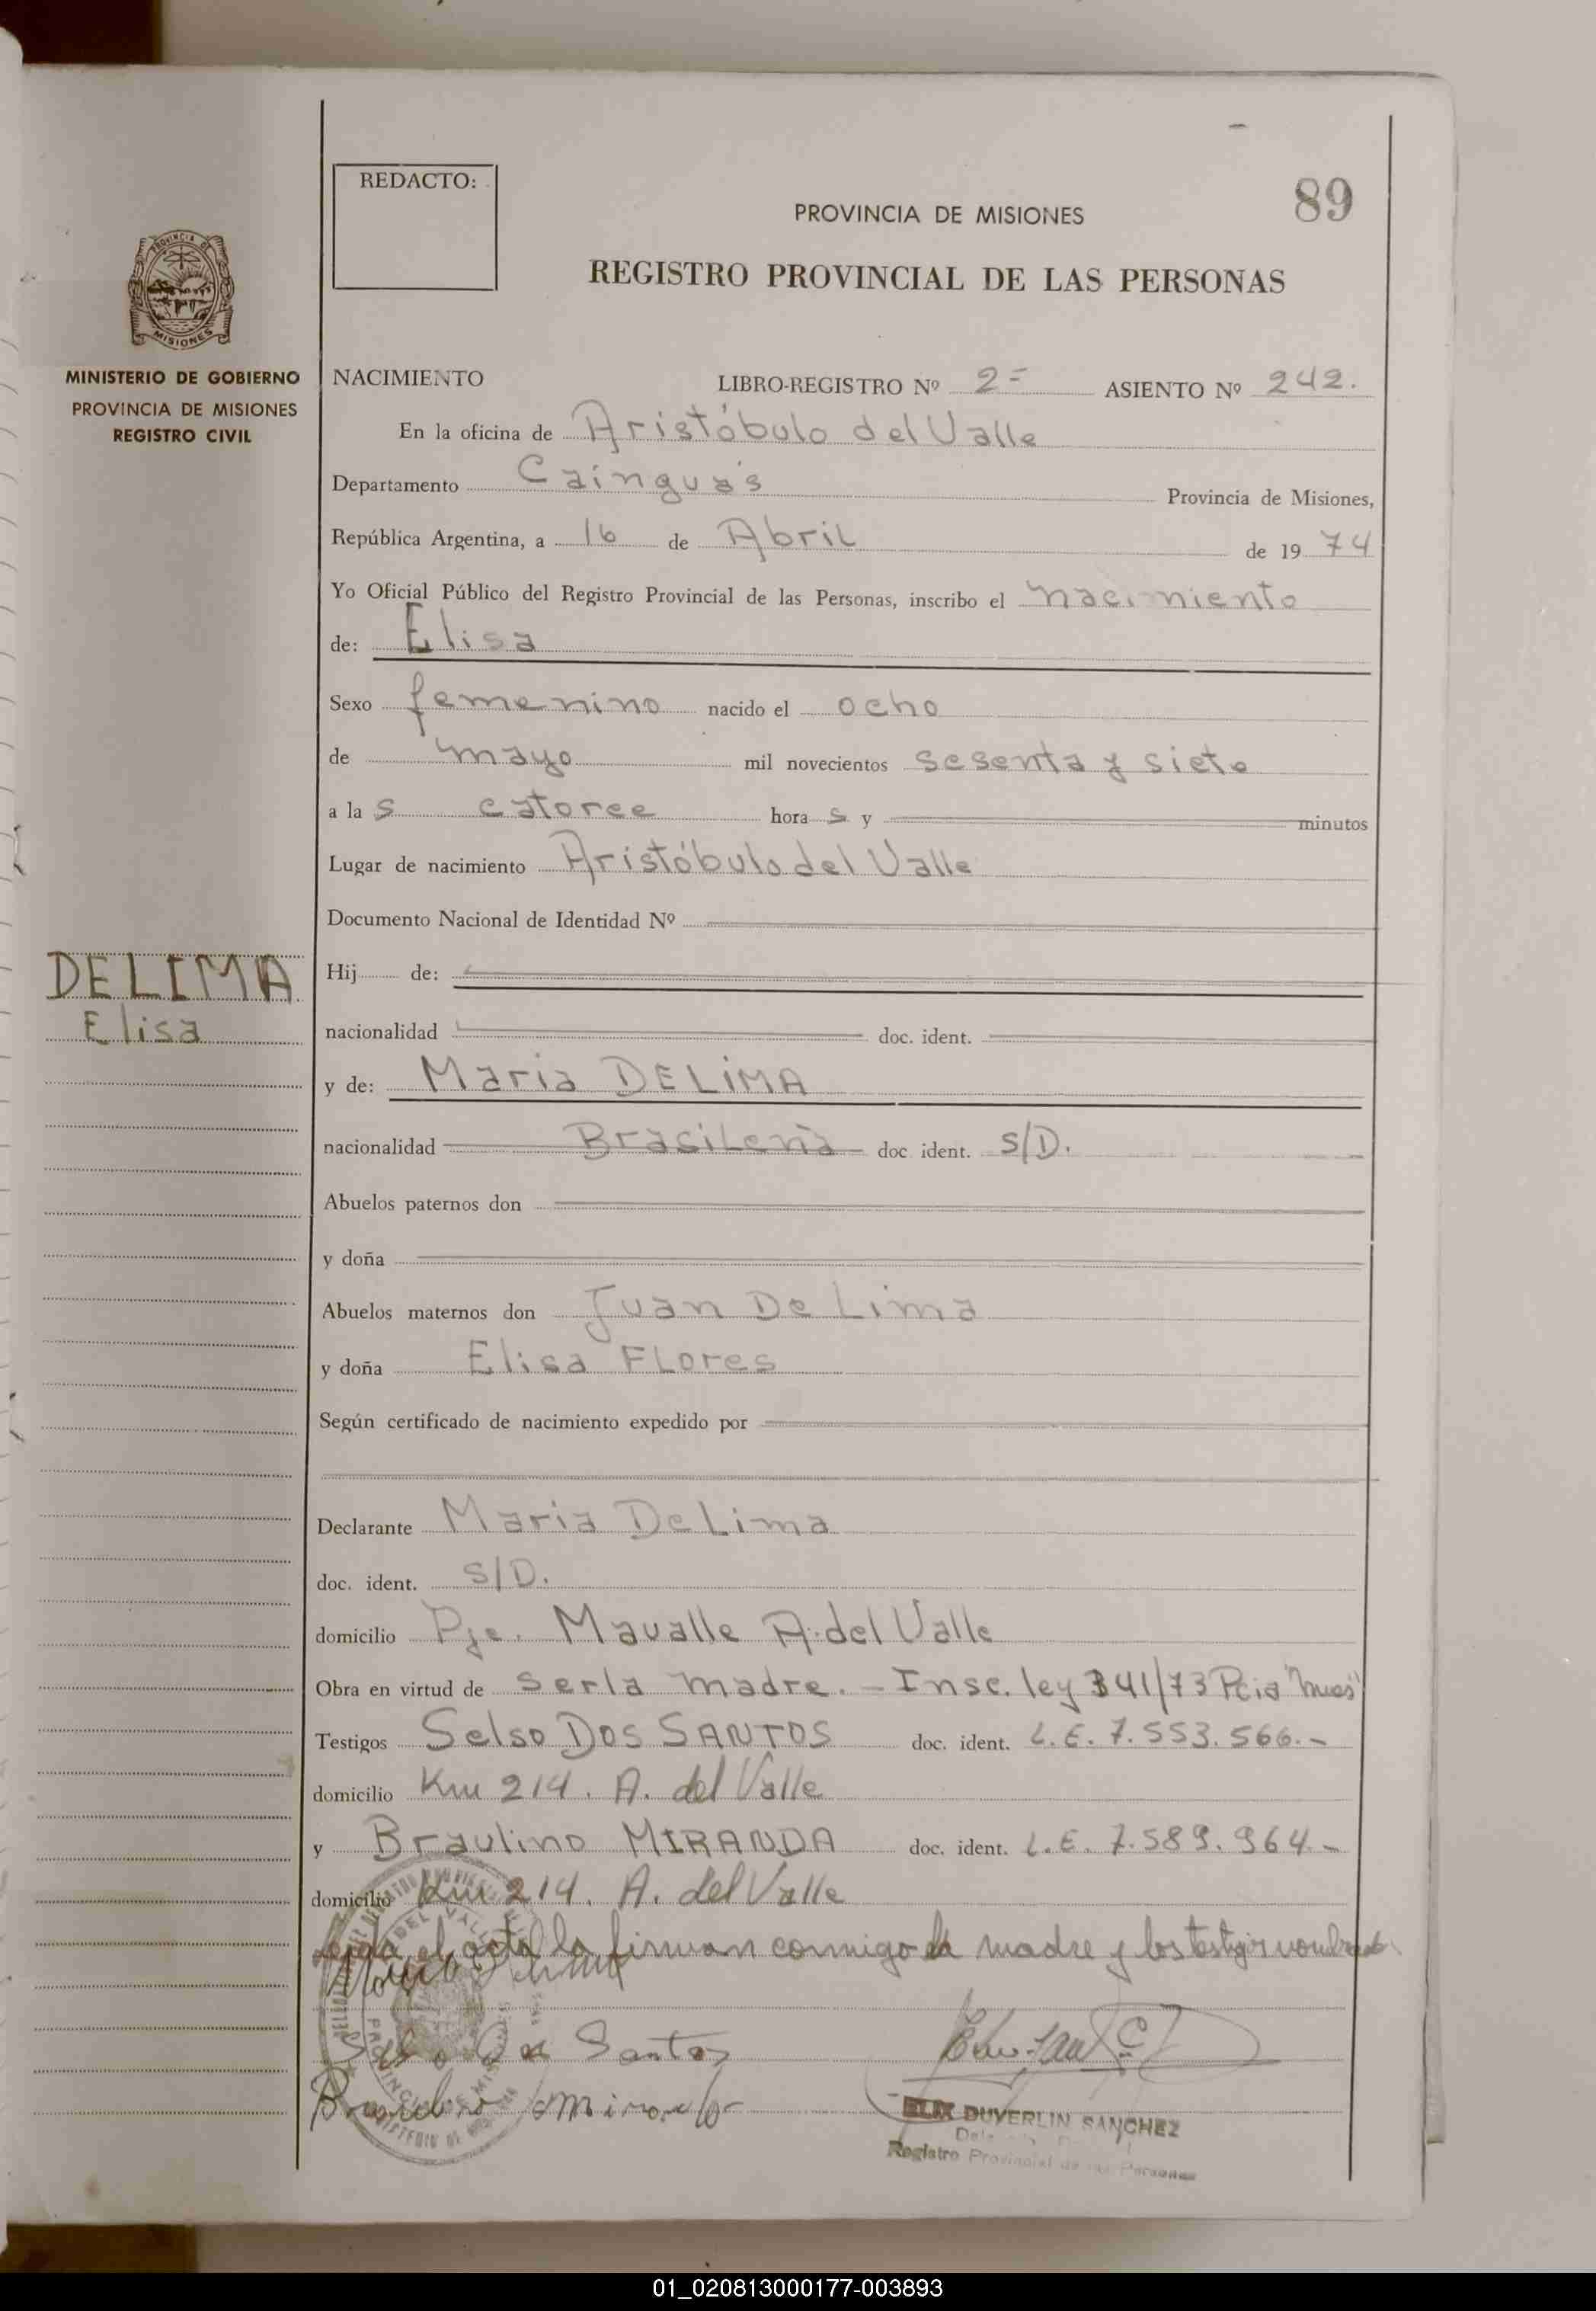 REDACTO:
89
PROVINCIA DE MISIONES
REGISTRO PROVINCIAL DE LAS PERSONAS
PROVINCIA DE
MISIONES
MINISTERIO DE GOBIERNO
PROVINCIA DE MISIONES
REGISTRO CIVIL
NACIMIENTO LIBRO-REGISTRO Nº 2= ASIENTO Nº 242.
En la oficina de Aristóbulo del Valle
Departamento Cainguás Provincia de Misiones,
República Argentina, a 16 de Abril de 19 74
Yo Oficial Público del Registro Provincial de las Personas, inscribo el nacimiento
de: Elisa
Sexo femenino nacido el ocho
de mayo mil novecientos sesenta y siete
a la s catorce hora s y minutos
Lugar de nacimiento Aristóbulo del Valle
Documento Nacional de Identidad Nº
DELIMA
Elisa
Hij de:
nacionalidad doc. ident.
y de: Maria DELIMA
nacionalidad Brasileña doc ident. S/D.
Abuelos paternos don
y doña
Abuelos maternos don Juan De Lima
y doña Elisa Flores
Según certificado de nacimiento expedido por
Declarante Maria De Lima
doc. ident. S/D.
domicilio Pje. Mavalle A. del Valle
Obra en virtud de ser la madre. - Insc. ley 341/73 Pcia
Testigos Selso DOS SANTOS doc. ident. L.E. 7.553.566.-
domicilio Km 214. A. del Valle
y Braulino MIRANDA doc. ident. L.E. 7.589.964.-
domicilio Km 214. A. del Valle
Leida el acta la firman conmigo la madre y los testigos
Santos
DUVERLIN SANCHEZ
Registro Provincial de las Personas
01_020813000177-003893